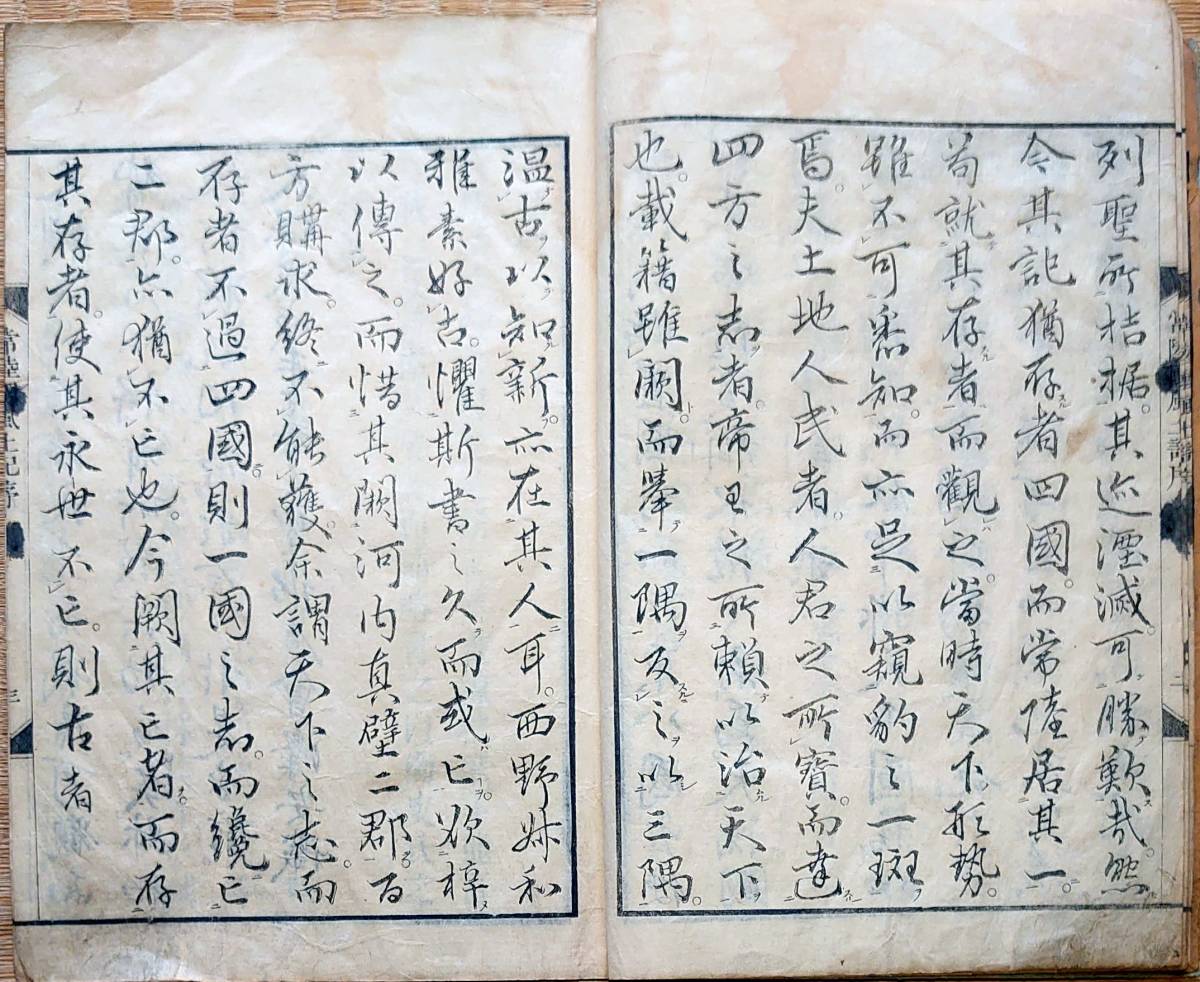 列聖所拮据。其迹湮滅。可勝歎哉。然
今其記猶存者四國。而常陸居其一。
苟就其存者而觀之。當時天下形勢。
雖不可悉知。而亦足以窺豹之一斑
焉。夫土地人民者。人君之所寶。而達
四方之志者。帝王之所賴以治天下
也。載籍雖闕。而舉一隅反之以三隅。
温古以知新。亦在其人耳。西野妹和
雅素好古。懼斯書之久而或亡。欲梓
以傳之。而惜其闕河内真壁二郡。百
方購求。終不能獲。余謂天下之志。而
存者不過四國。則一國之志。而纔亡
二郡。亦猶不亡也。今闕其亡者。而存
其存者。使其永世不亡。則古者
常陸風土記序
三